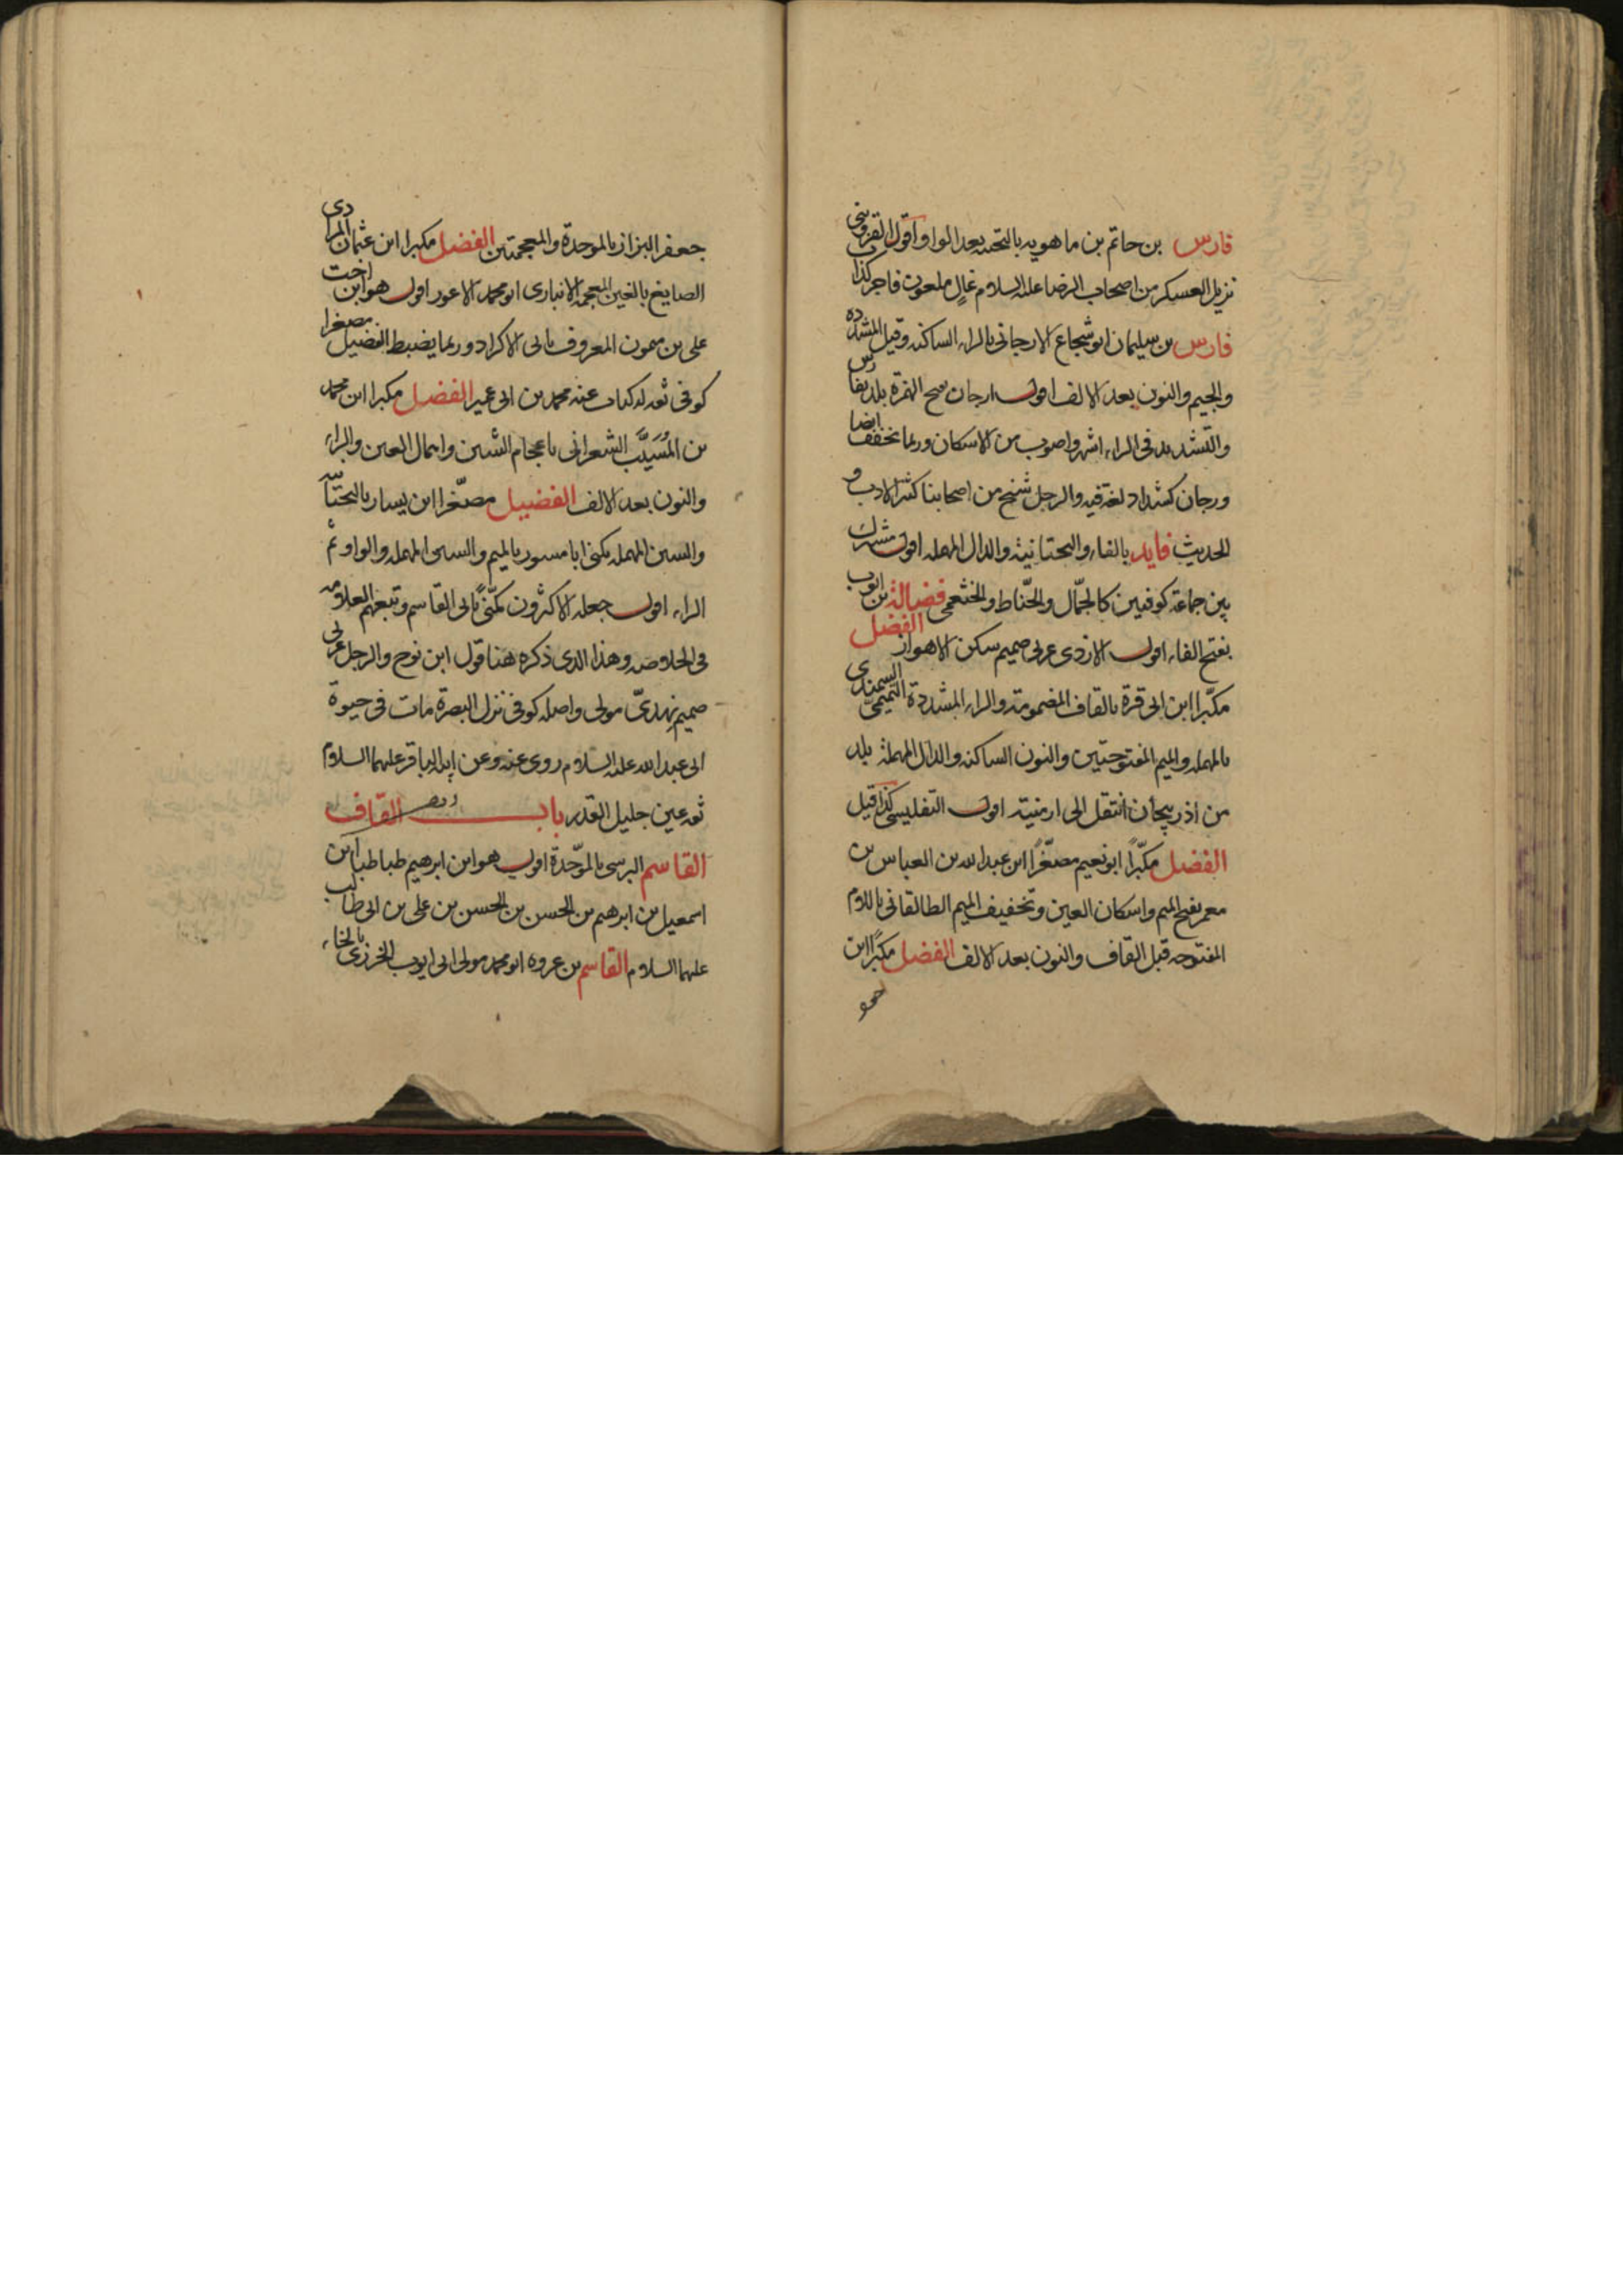 فارس بن حاتم بن ماهويه بالتحتيه بعد الواو اقول القزوينى
نزيل العسكر من اصحاب الرضا عليه السلام غال ملعون فاجر كذاب
فارس بن سليمان ابو شجاع الارجانى بالراء الساكنه وقيل المشدده
والجيم والنون بعد الالف اقول ارجان بفتح الهمزة بلد بفارس
والتشديد فى الراء اشهر واصوب من الاسكان وربما تخفف ايضا
ورجان كشداد لغة فيه والرجل شيخ من اصحابنا كثير الادب و
الحديث فايد بالفاء والتحتانية والدال المهمله اقول مشترك
بين جماعة كوفيين كالجمّال والحنّاط والخثعمى فضالة بن ايوب
بفتح الفاء اقول الازدى عربى صميم سكن الاهواز الفضل
مكبّرا ابن ابى قرة بالقاف المضمومة والراء المشددة التميمىّ السمندى
بالمهمله والميم المفتوحتين والنون الساكنه والدال المهملة بلد
من اذربيجان انتقل الى ارمنية اقول التفليسى كذا قيل
الفضل مكبّراً ابو نعيم مصغّراً ابن عبد الله بن العباس بن
معمر بفتح الميم واسكان العين وتخفيف الميم الطالقانى باللام
المفتوحه قبل القاف والنون بعد الالف الفضل مكبّراً ابن
جعفر البزاز بالموحدة والمعجمتين الفضل مكبرا ابن عثمان المرادى
الصايغ بالغين المعجمه الانبارى ابو محمد الاعور اقول هو ابن اخت
على بن ميمون المعروف بابى الاكراد وربما يضبط الفضيل مصغرا
كوفى ثقه له كتاب عنه محمد بن ابى عمير الفضل مكبرا ابن محمد
بن المُسَيَّب الشعرانى باعجام الشين واهمال العين والراء
والنون بعد الالف الفضيل مصغّرا ابن يسار بالتحتانيه
والسين المهمله يكنى ابا مسور بالميم والسين المهمله والواو ثم
الراء اقول جعله الاكثرون مكنّىً بابى القاسم وتبعهم العلامه
فى الخلاصه وهذا الذى ذكره هنا قول ابن نوح والرجل عربى
صميم نهدىّ مولى واصله كوفى نزل البصرة مات فى حيوة
ابى عبد الله عليه السلام روى عنه وعن ابيه الباقر عليهما السلام
ثقه عين جليل القدر باب القاف
القاسم البرسى بالموّحدة اقول هو ابن ابرهيم طباطبا ابن
اسمعيل بن ابرهيم بن الحسن بن الحسن بن على بن ابى طالب
عليهما السلام القاسم بن عروه ابو محمد مولى ابى ايوب الخوزى بالخاء